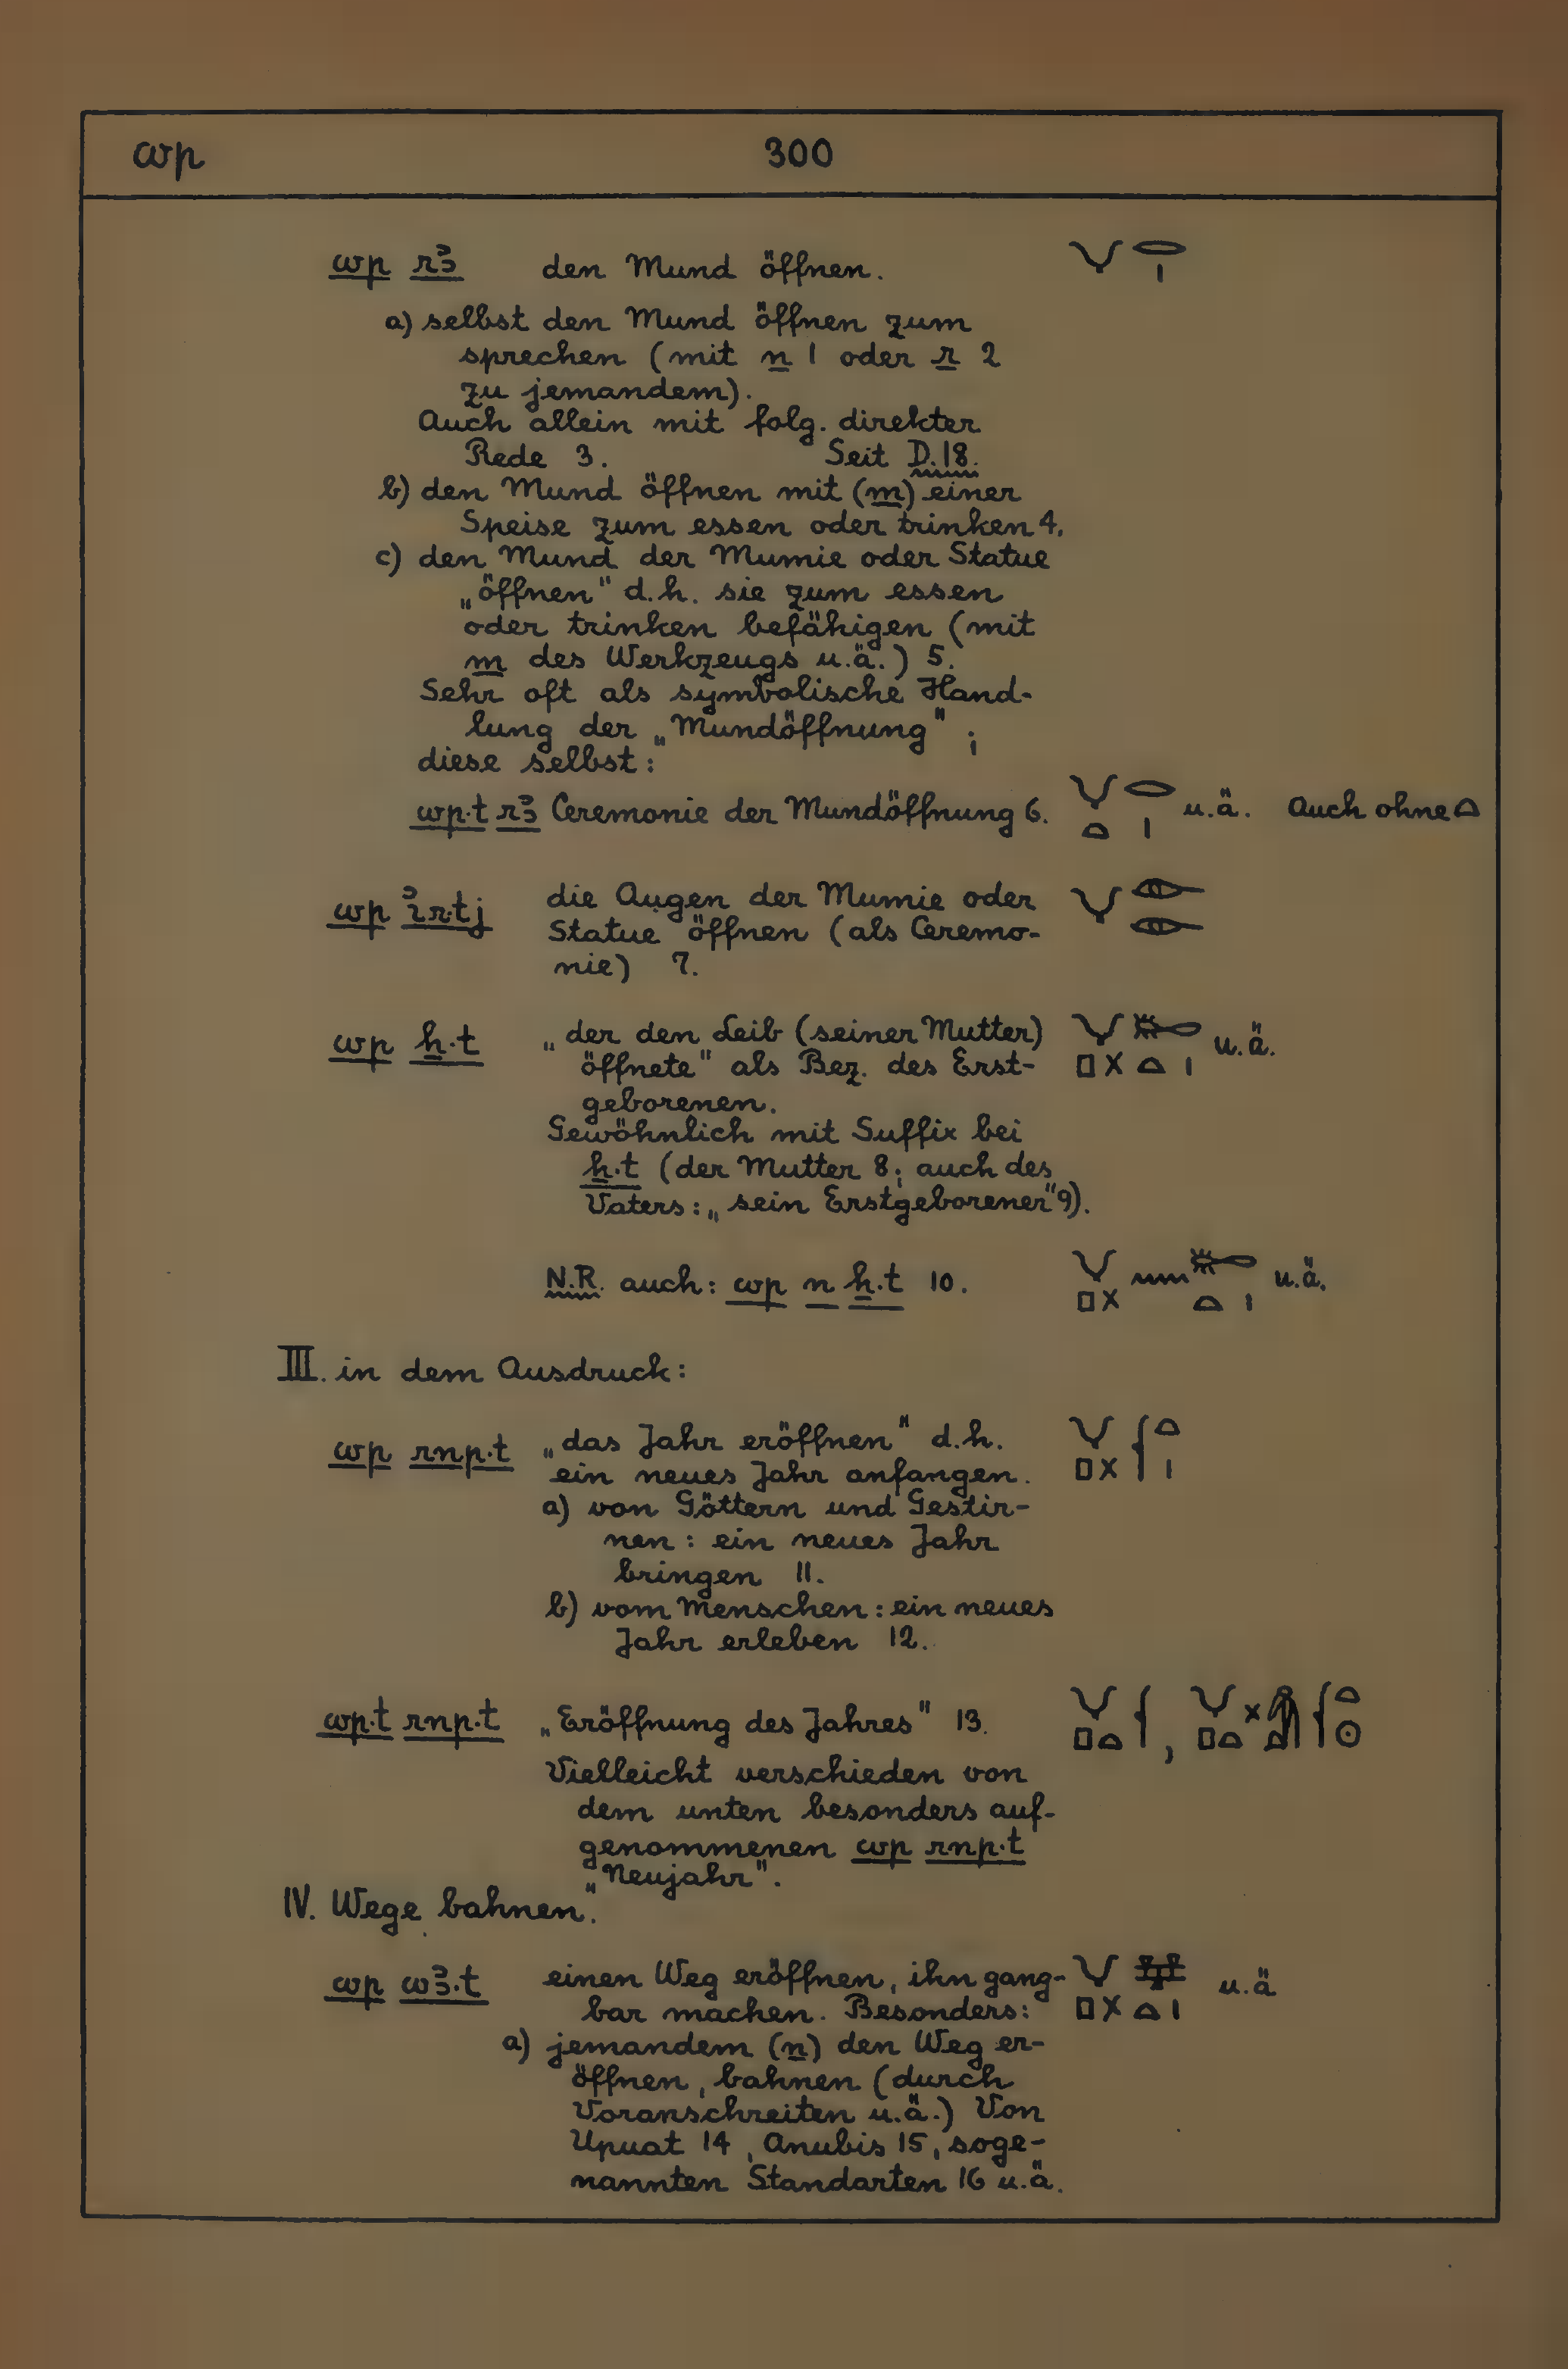 wp 300
wp rꜣ den Mund öffnen. 𓄋𓂋𓏤
a) selbst den Mund öffnen zum
sprechen (mit n 1 oder r 2
zu jemandem).
Auch allein mit folg. direkter
Rede 3. Seit D.18.
b) den Mund öffnen mit (m) einer
Speise zum essen oder trinken 4.
c) den Mund der Mumie oder Statue
„öffnen" d.h. sie zum essen
oder trinken befähigen (mit
m des Werkzeugs u.ä.) 5.
Sehr oft als symbolische Hand-
lung der „Mundöffnung" ;
diese selbst:
wp.t rꜣ Ceremonie der Mundöffnung 6. 𓄋𓏏𓂋𓏤 u.ä. Auch ohne 𓏏
wp ꞽr.tj die Augen der Mumie oder 𓄋𓁹𓁹
Statue öffnen (als Ceremo-
nie) 7.
wp ẖ.t „der den Leib (seiner Mutter) 𓄋𓊪𓏴𓄡𓏏𓏤 u.ä.
öffnete" als Bez. des Erst-
geborenen.
Gewöhnlich mit Suffix bei
ẖ.t (der Mutter 8; auch des
Vaters: „sein Erstgeborener" 9).
N.R. auch: wp n ẖ.t 10. 𓄋𓊪𓏴𓈖𓄡𓏏𓏤 u.ä.
III. in dem Ausdruck:
wp rnp.t „das Jahr eröffnen" d.h. 𓄋𓊪𓏴𓆳𓏏𓏤
ein neues Jahr anfangen.
a) von Göttern und Gestir-
nen : ein neues Jahr
bringen 11.
b) vom Menschen : ein neues
Jahr erleben 12.
wp.t rnp.t „Eröffnung des Jahres" 13. 𓄋𓊪𓏏𓆳,
Vielleicht verschieden von
dem unten besonders auf-
genommenen wp rnp.t
„Neujahr".
IV. Wege bahnen.
wp wꜣ.t einen Weg eröffnen, ihn gang- 𓄋𓊪𓏴𓈐𓏏𓏤 u.ä
bar machen. Besonders:
a) jemandem (n) den Weg er-
öffnen, bahnen (durch
Voranschreiten u.ä.) Von
Upuat 14, Anubis 15, soge-
nannten Standarten 16 u.ä.